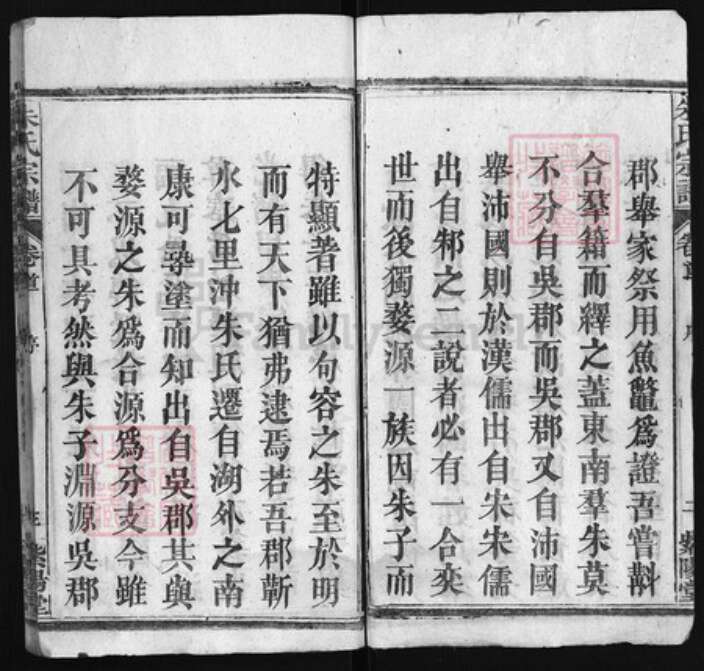 朱氏宗譜
卷首
序
二
紫陽堂
郡舉家祭用魚鼈爲證吾嘗斠
合羣籍而繹之蓋東南羣朱莫
不分自吳郡而吳郡又自沛國
舉沛國則於漢儒出自宋宋儒
出自邾之二說者必有一合奕
世而後獨婺源一族因朱子而
特顯著雖以句容之朱至於明
而有天下猶弗逮焉若吾郡蘄
水七里沖朱氏遷自湖外之南
康可㝷塗而知出自吳郡其與
婺源之朱爲合源爲分支今雖
不可具考然與朱子淵源吳郡
朱氏宗譜
卷首
序
紫陽堂